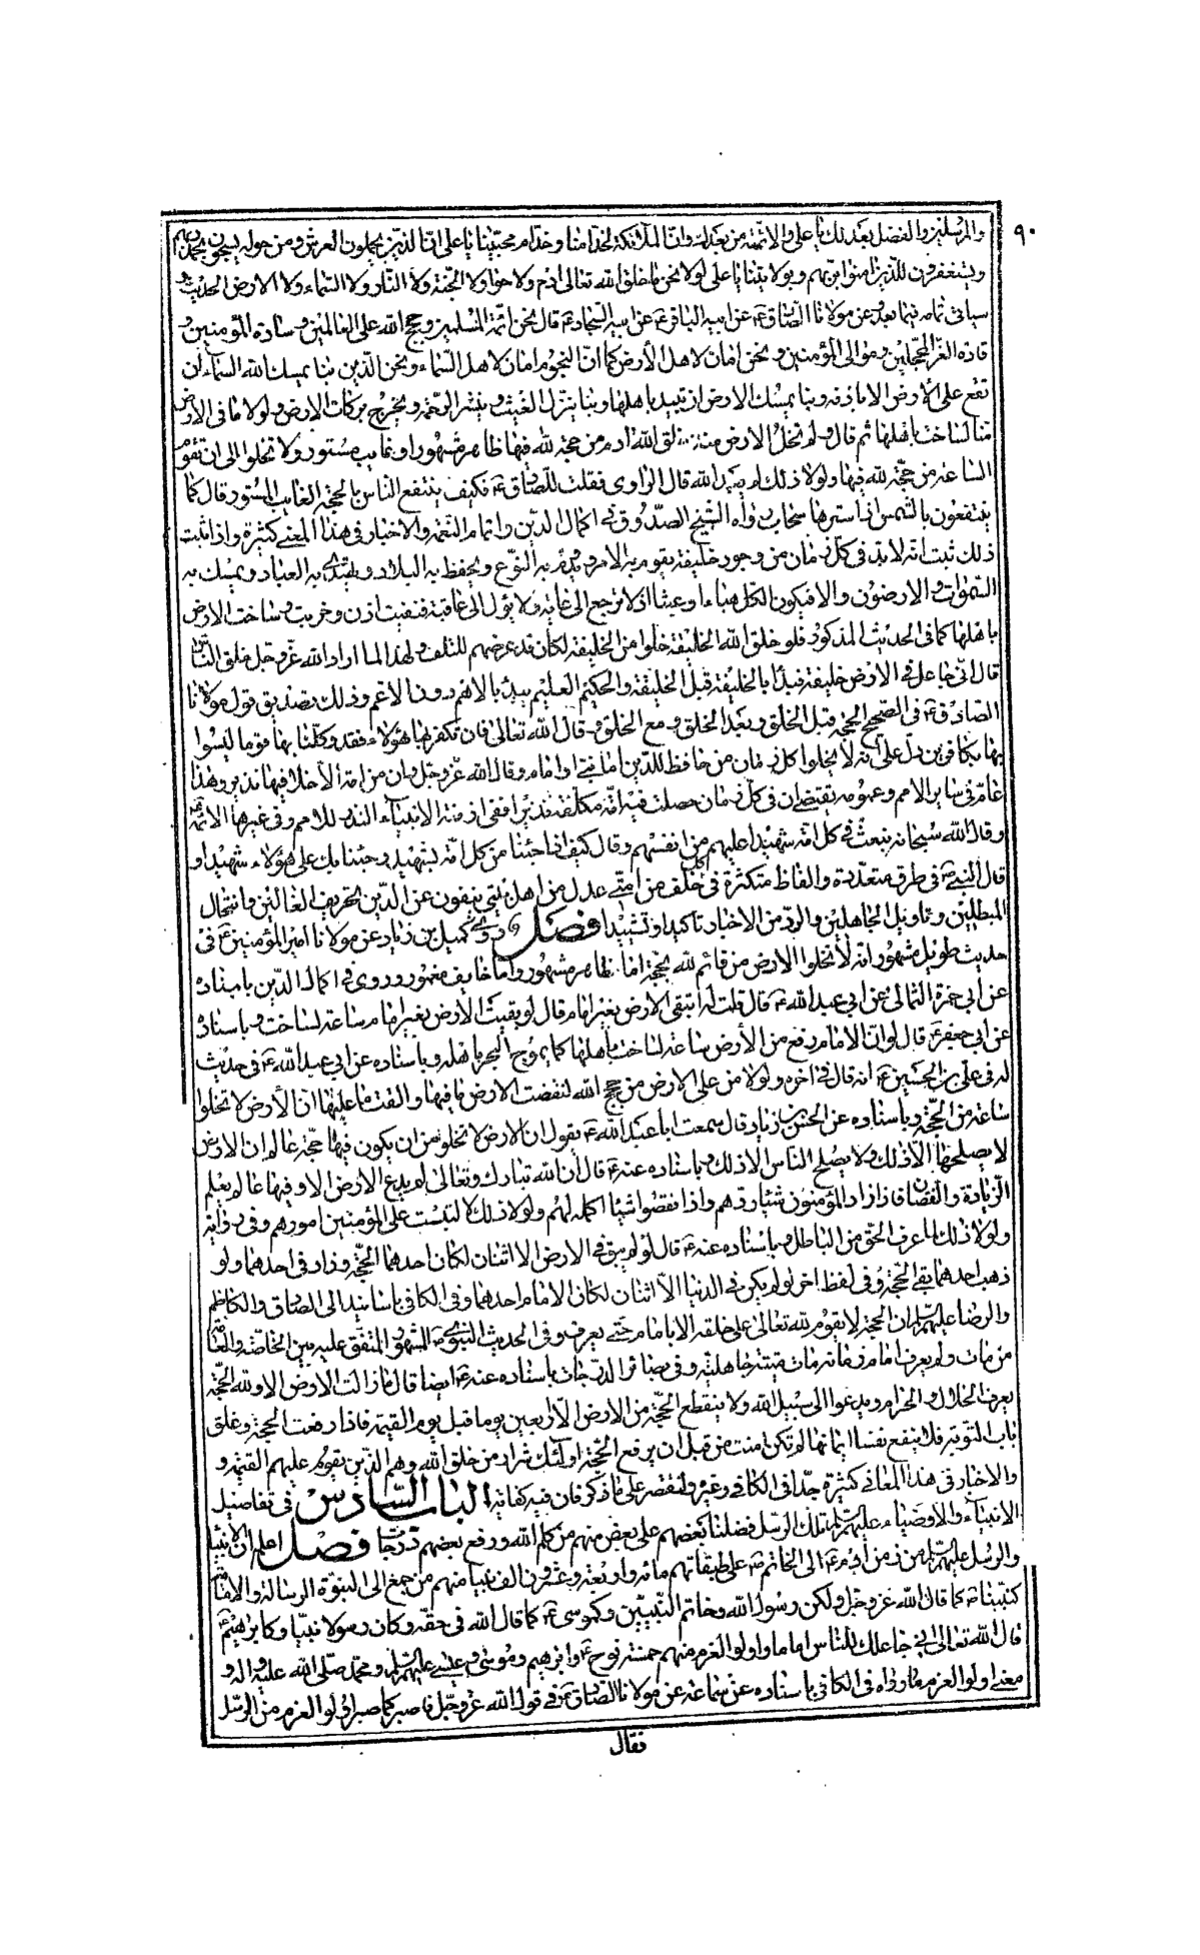 ٩٠
والمرسلين والفضل بعدك لك يا علي وللائمة من بعدك وان الملائكة لخدامنا وخدام محبينا يا علي الذين يحملون العرش ومن حوله يسبحون بحمد ربهم
ويستغفرون للذين امنوا بربهم وبولايتنا يا علي لولا نحن ما خلق الله تعالى ادم ولا حوا ولا الجنة ولا النار ولا السماء ولا الارض الحديث و
سياتي تمامه فيما بعد وعن مولانا الصادق ع عن ابيه الباقر ع عن ابيه السجاد ع قال نحن ائمة المسلمين وحجج الله على العالمين وسادة المؤمنين و
قادة الغر المحجلين وموالى المؤمنين ونحن امان لاهل الأرض كما ان النجوم امان لاهل السماء ونحن الذين بنا يمسك الله السماء ان
تقع على الأرض الا باذنه وبنا يمسك الارض ان تميد باهلها وبنا ينزل الغيث وينشر الرحمة ويخرج بركات الارض ولولا ما في الارض
منا لساخت باهلها ثم قال ولم تخل الارض منذ خلق الله ادم من حجة لله فيها ظاهر مشهور او غايب مستور ولا تخلوا الى ان تقوم
الساعة من حجة لله فيها ولولا ذلك لم يعبد الله قال الراوي فقلت للصادق ع فكيف ينتفع الناس بالحجة الغايب المستور قال كما
ينتفعون بالشمس اذا سترها سحاب رواه الشيخ الصدوق في اكمال الدين واتمام النعمة والاخبار في هذا المعنى كثيرة واذا ثبت
ذلك ثبت انه لابد في كل زمان من وجود خليفة يقوم به الامر ويدوم به النوع ويحفظ به البلاد ويهتدى به العباد ويمسك به
السموات والارضون والا فيكون الكل هباء وعبثا اذ لا مرجع الى غاية ولا يؤل الى عاقبة ففنيت اذن وخربت وساخت الارض
باهلها كما في الحديث المذكور فلو خلق الله الخليقة خلوا من الخليفة لكان قد عرضهم للتلف ولهذا لما اراد الله عز وجل خلق الناس
قال اني جاعل في الارض خليفة فبدأ بالخليفة قبل الخليقة والحكيم العليم يبدأ بالاهم دون الاعم وذلك تصديق قول مولانا
الصادق ع في الصحيح الحجة قبل الخلق وبعد الخلق ومع الخلق وقال الله تعالى فان يكفر بها هؤلاء فقد وكلنا بها قوما ليسوا
بها بكافرين دل على انه لا يخلوا كل زمان من حافظ للدين اما نبي او امام وقال الله عز وجل وان من امة الا خلا فيها نذير وهذا
عام في ساير الامم وعمومه يقتضي ان في كل زمان حصلت فيه امة مكلفة نذيرا ففي ازمنة الانبياء النذر للامم وفي غيرها الائمة
وقال الله سبحانه نبعث في كل امة شهيدا عليهم من انفسهم وقال كيف اذا جئنا من كل امة بشهيد وجئنا بك على هؤلاء شهيدا و
قال النبي ص في طرق متعددة والفاظ متكثرة في كل خلف من امتي عدل من اهل بيتي ينفون عن الدين تحريف الغالين وانتحال
المبطلين وتاويل الجاهلين والرد من الاخبار تاكيدا وتشييدا فصل روى كميل بن زياد عن مولانا امير المؤمنين ع في
حديث طويل مشهور انه لا تخلوا الارض من قائم لله بحجة اما ظاهر مشهور واما خايف مغمور وروى في اكمال الدين باسناده
عن ابي حمزة الثمالي عن ابي عبد الله ع قال قلت له اتبقى الارض بغير امام قال لو بقيت الأرض بغير امام ساعة لساخت وباسناده
عن ابي جعفر ع قال لو ان الامام رفع من الأرض ساعة لساخت باهلها كما يموج البحر باهله وباسناده عن ابي عبد الله ع في حديث
له في علي بن الحسين ع انه قال في اخره ولولا من على الارض من حجج الله لنفضت الارض ما فيها والقت ما عليها ان الأرض لا تخلوا
ساعة من الحجة وباسناده عن الحسن بن زياد قال سمعت ابا عبد الله ع يقول ان الارض لا تخلو من ان يكون فيها حجة عالم ان الارض
لا يصلحها الا ذلك ولا يصلح الناس الا ذلك وباسناده عنه ع قال ان الله تبارك وتعالى لم يدع الارض الا وفيها عالم يعلم
الزيادة والنقصان فاذا زاد المؤمنون شيئا ردهم واذا نقصوا شيئا اكمله لهم ولولا ذلك لالتبست على المؤمنين امورهم وفي رواية
ولولا ذلك لما عرف الحق من الباطل وباسناده عنه ع قال لو لم يبق في الارض الا اثنان لكان احدهما الحجة وزاد في احدهما ولو
ذهب احدهما بقي الحجة وفي لفظ اخر لو لم يكن في الدنيا الا اثنان لكان الامام احدهما وفي الكافي باسانيد الى الصادق والكاظم
والرضا عليهم السلام ان الحجة لا يقوم لله تعالى على خلقه الا بامام حتى يعرف وفي الحديث النبوي ص المشهور المتفق عليه بين الخاصة والعامة
من مات ولم يعرف امام زمانه مات ميتة جاهلية وفي بصائر الدرجات باسناده عنه ع ايضا قال ما زالت الارض الا ولله الحجة
يعرف الحلال والحرام ويدعوا الى سبيل الله ولا ينقطع الحجة من الارض الا اربعين يوما قبل يوم القيمة فاذا رفعت الحجة وغلق
باب التوبة فلا ينفع نفسا ايمانها لم تكن امنت من قبل ان يرفع الحجة اولئك شرار من خلق الله وهم الذين يقوم عليهم القيمة و
والاخبار في هذا المعانى كثيرة جدا في الكافي وغيره ولنقصر على ما ذكر فان فيه كفاية الباب السادس في تفاصيل
الانبياء والاوصياء عليهم السلام تلك الرسل فضلنا بعضهم على بعض منهم من كلم الله ورفع بعضهم درجات فصل اعلم ان الانبياء
والرسل عليهم السلام من زمن ادم ع الى الخاتم ص على طبقاتهم مائة واربعة وعشرون الف نبيا منهم من جمع الى النبوة الرسالة والامامة
كنبينا ص كما قال الله عز وجل ولكن رسول الله وخاتم النبيين وكموسى ع كما قال الله في حقه وكان رسولا نبيا وكابراهيم ع
قال الله تعالى اني جاعلك للناس اماما واولو العزم منهم خمسة نوح ع وابراهيم وموسى وعيسى عليهم السلام ومحمد صلى الله عليه واله و
معنى اولو العزم ما رواه في الكافي باسناده عن سماعة عن مولانا الصادق ع في قول الله عز وجل فاصبر كما صبر اولو العزم من الرسل
فقال